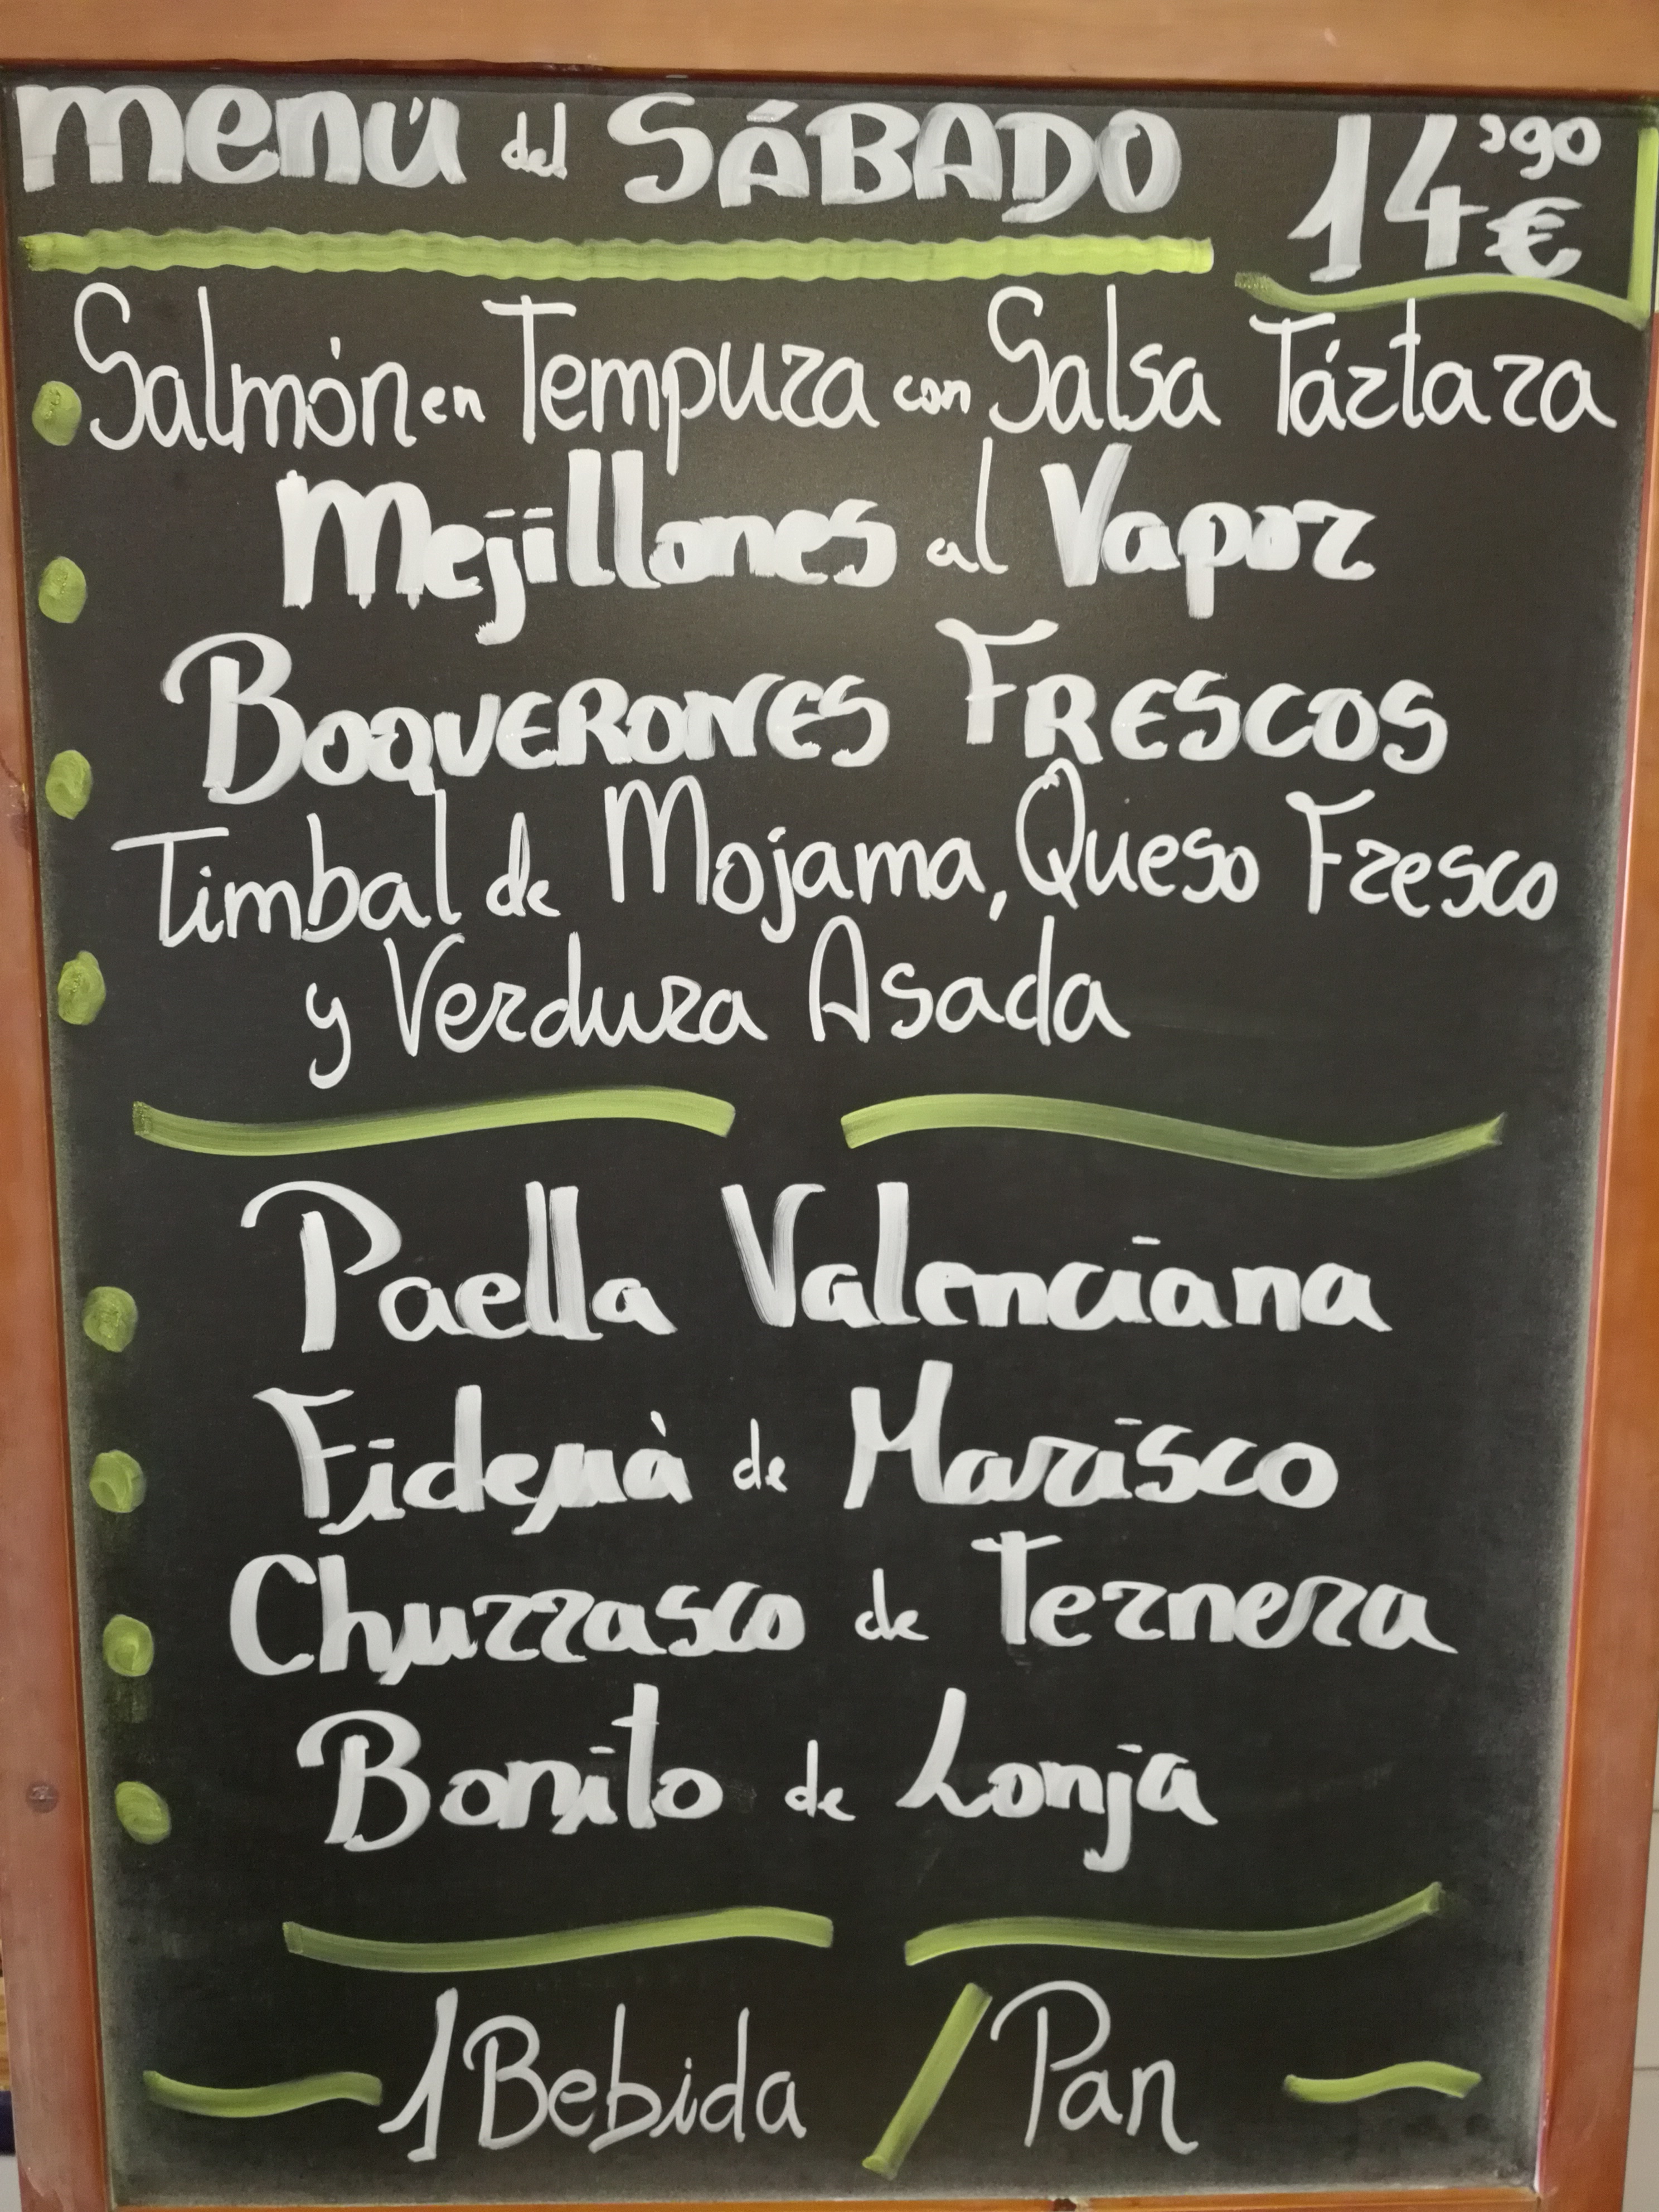 menú del SÁBADO 14'90 €
Salmón en Tempura con Salsa Tártara
Mejillones al Vapor
BOQUERONES FRESCOS
Timbal de Mojama, Queso Fresco
y Verdura Asada
Paella Valenciana
Fideuà de Marisco
Churrasco de Ternera
Bonito de Lonja
1 Bebida / Pan